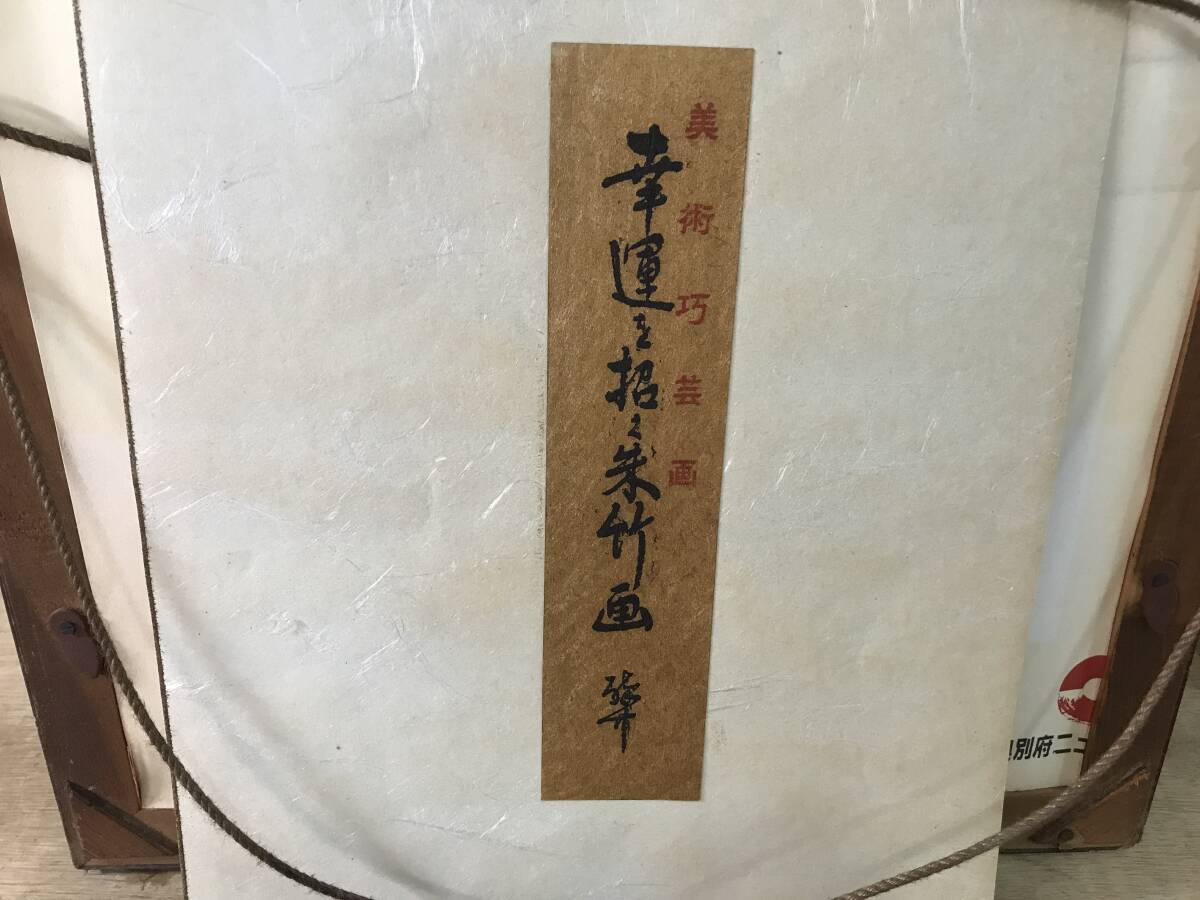 美術巧芸画
幸運を招く朱竹画
別府ニュ